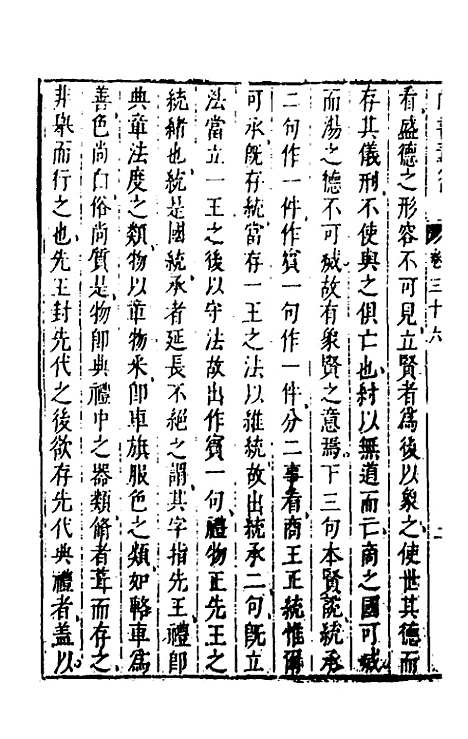 卷三十六
看盛德之形容不可見立賢者爲後以象之使世其德而
存其儀刑不使與之俱亡也紂以無道而亡商之國可滅
而湯之德不可滅故有象賢之意焉下三句本賢說統承
二句作一件作賓一句作一件分二事看商王正統惟爾
可承旣存統當存一王之法以維統故出統承二句旣立
法當立一王之後以守法故出作賓一句禮物正先王之
統緒也統是國統承者延長不絕之謂其字指先王禮卽
典章法度之類物以章物釆卽車旗服色之類如輅車爲
善色尚白俗尚質是物卽典禮中之器類脩者葺而存之
非舉而行之也先王封先代之後欲存先代典禮者蓋以